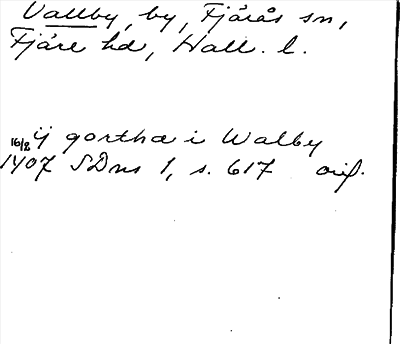 Vallby, by, Fjärås sn,
Fjäre hd, Hall. l.
16/2 ij gortha i Walby
1407 SDns 1, s. 617 avf.